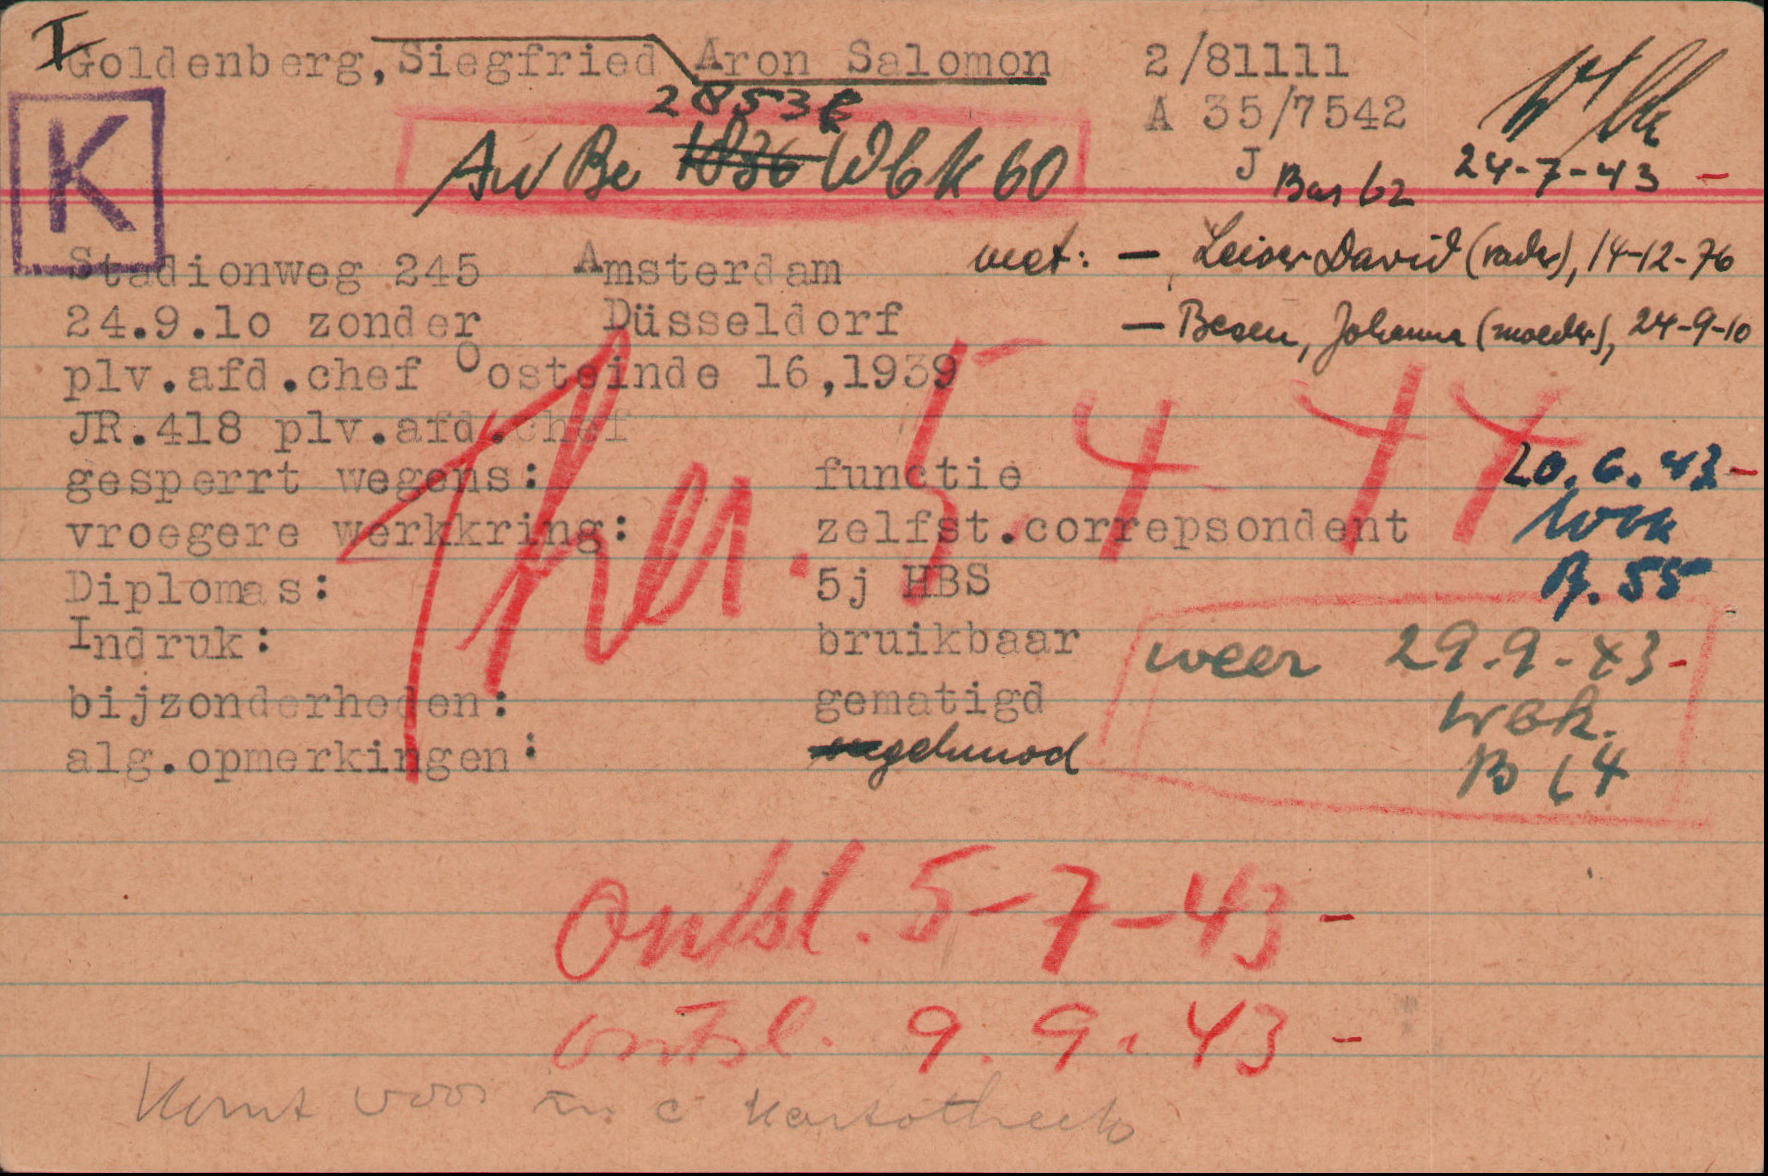 I
Goldenberg, Siegfried Aron Salomon 2/81111
A 35/7542
2853
K
Aw Be 1836 Wbk 60
J Bar 62 24-7-43 -
Stadionweg 245 Amsterdam
met: - Leiser David (vader), 14-12-76
24.9.lo zonder Düsseldorf
- Besen, Johanna (moeder), 24-9-10
plv.afd.chef Oosteinde 16,1939
JR.418 plv.afd.chef
gesperrt wegens: functie
20.6.43-
vroegere werkkring: zelfst.correpsondent
Wbk
B. 55
Diplomas: 5j HBS
Thr. 5-4-44
Indruk: bruikbaar
weer 29.9-43-
bijzonderheden: gematigd
Wbk.
alg.opmerkingen:
B 64
ontsl. 5-7-43-
ontsl. 9.9.43-
Komt voor in c Kartotheek